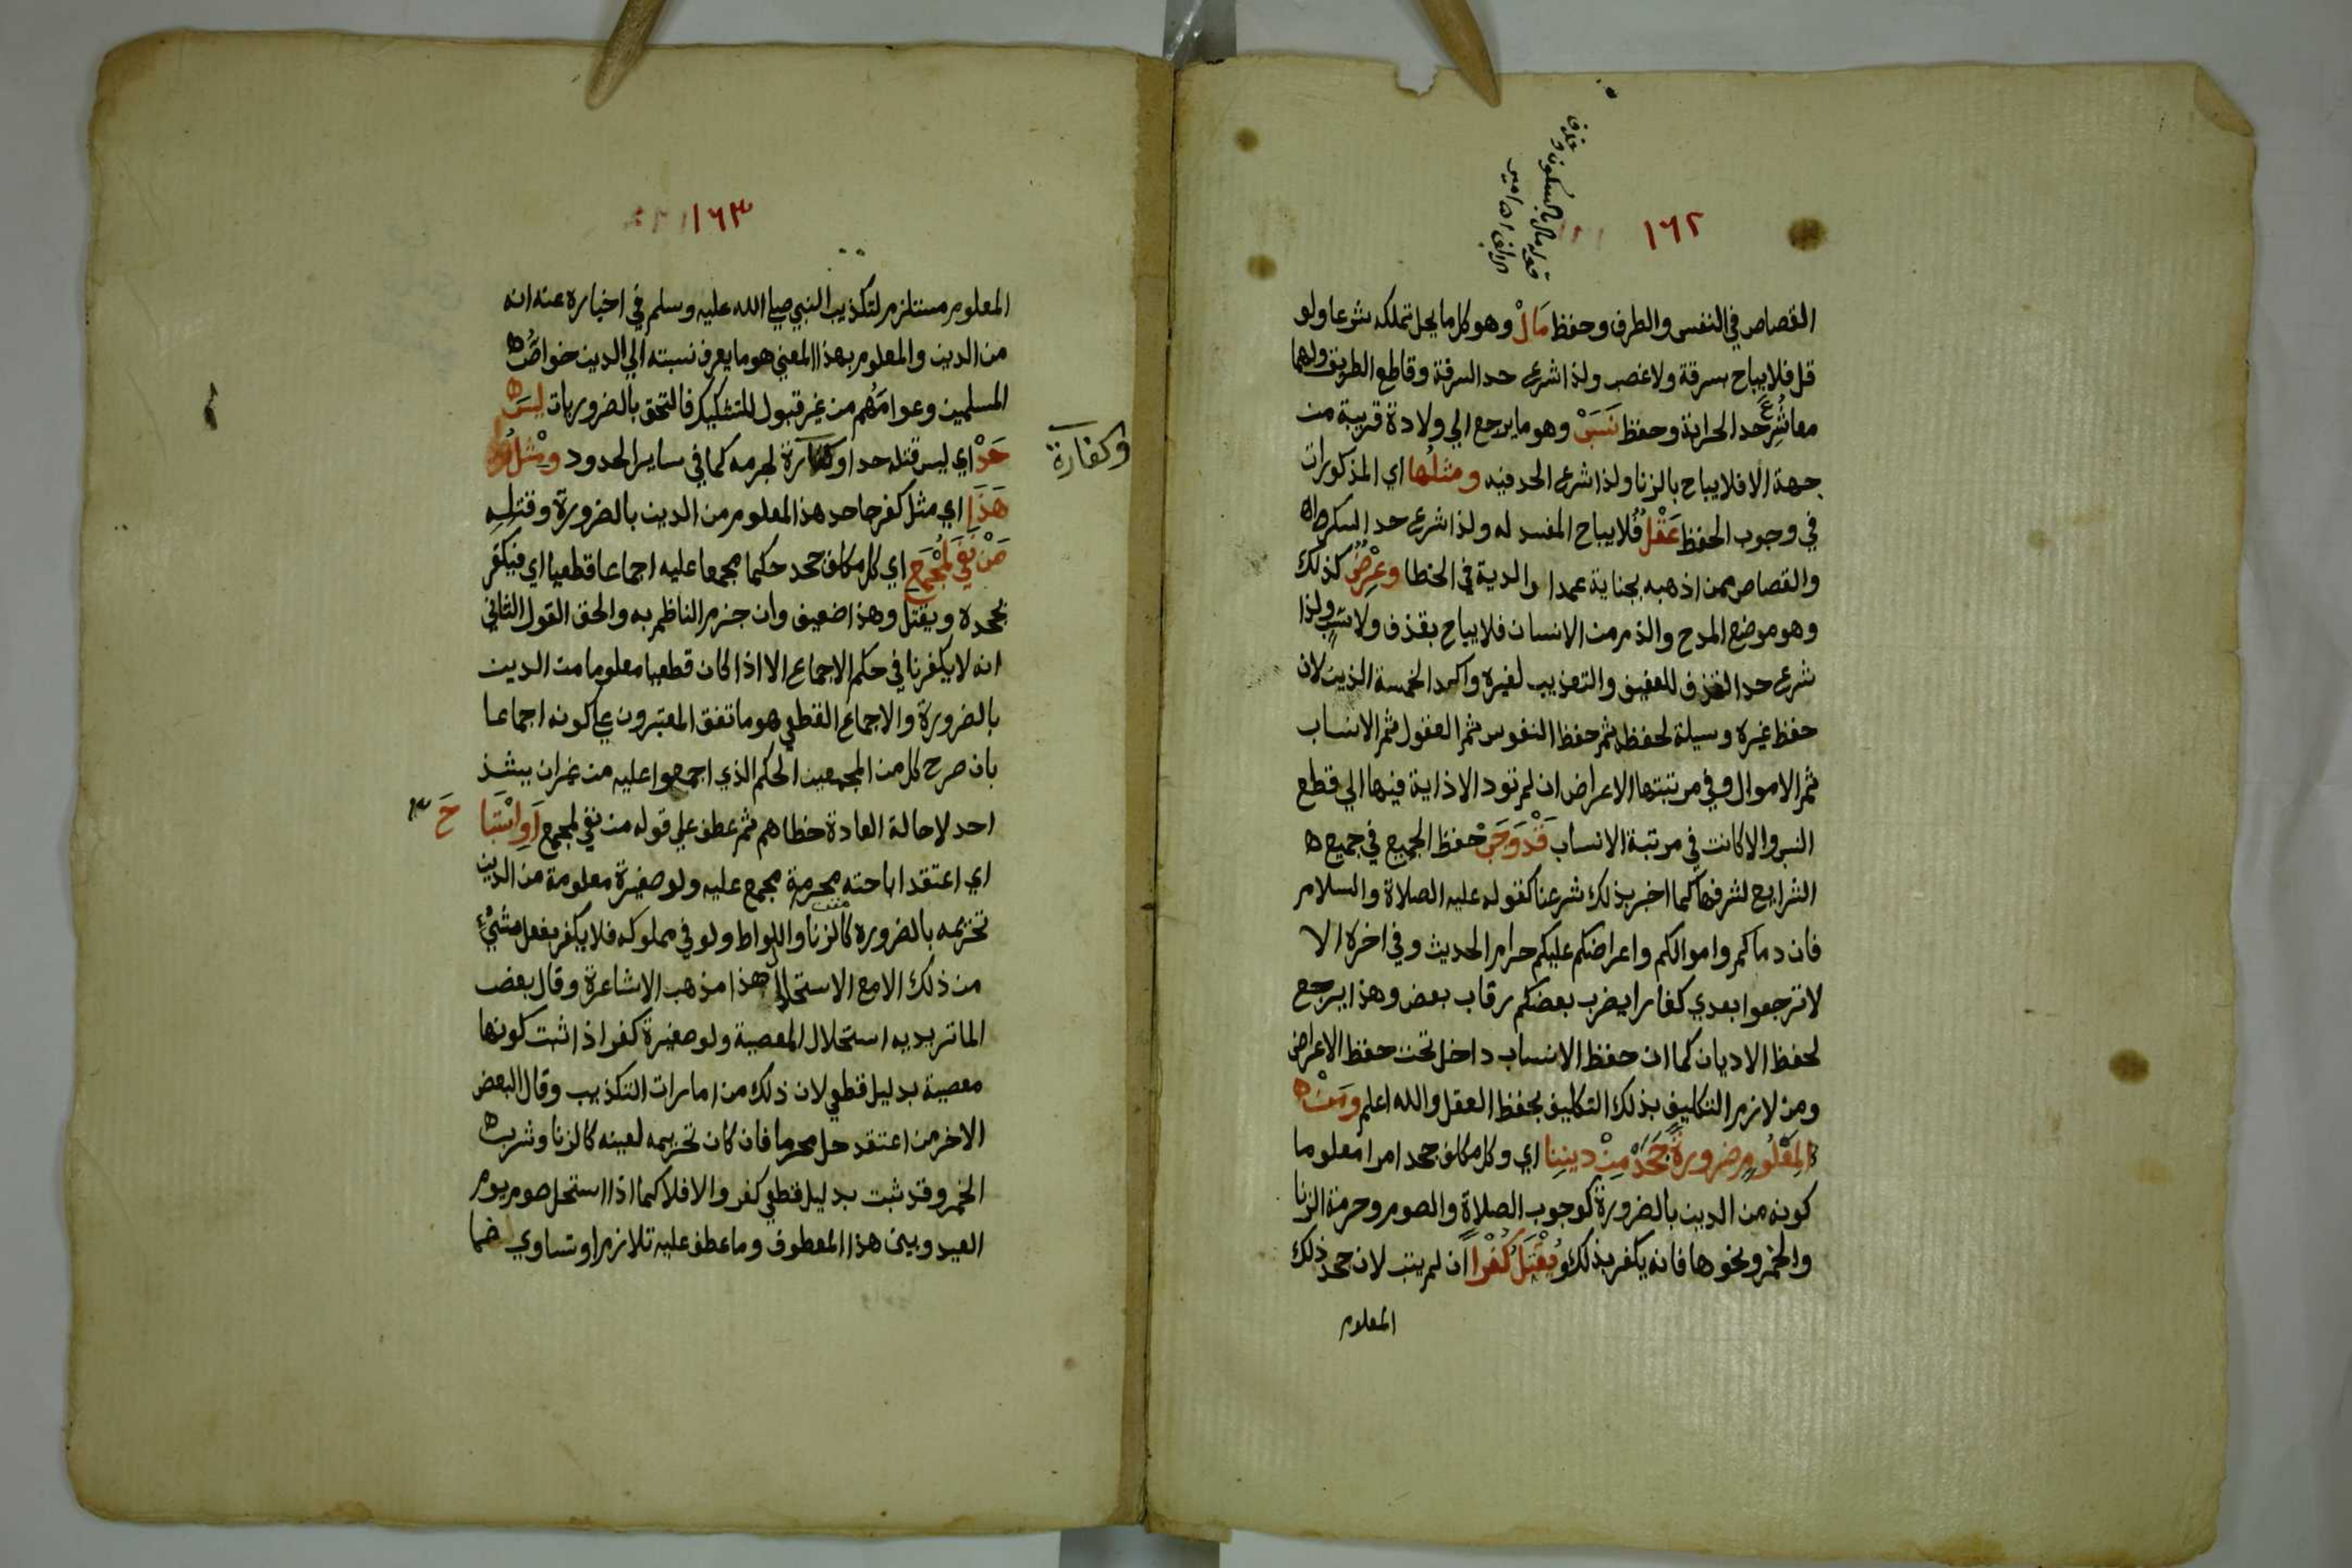 ١٦٢
قوله مال بالسكون وحذف
القصاص في النفس والطرف وحفظ مَالْ وهو كل ما يحل تملكه شرعا ولو
قل فلا يباح بسرقة ولا غصب ولذا شرع حد السرقة وقاطع الطريق ولهما
معا شُرِعَ حد الحرابة وحفظ نَسَبْ وهو ما يرجع الي ولادة قريبة من
جهة الا فلا يباح بالزنا ولذا شرع الحد فيه ومثلُها اي المذكورات
في وجوب الحفظ عَقْلٌ فلا يباح المفسد له ولذا شرع حد السكر
والقصاص ممن اذهبه بجناية عمدا والدية في الخطا وعِرْضٌ كذلك
وهو موضع المدح والذم من الانسان فلا يباح بقذف ولا سَبٍّ ولذا
شرع حد القذف للعفيف والتعزيب لغيره واكد الخمسة الذين لان
حفظ غيره وسيلة لحفظه ثم حفظ النفوس ثم العقول ثم الانساب
ثم الاموال وفي مرتبتها الاعراض ان لم تود الاذاية فيها الي قطع
النسب والا كانت في مرتبة الانساب قَدْ وَجَبْ حفظ الجميع في جميع ه
الشرايع لشرفها كما اخبر بذلك شرعنا كقوله عليه الصلاة والسلام
فان دماكم واموالكم واعراضكم عليكم حرام الحديث وفي اخره الا
لا ترجعوا بعدي كفارا يضرب بعضكم رقاب بعض وهذا يرجع
لحفظ الاديان كما ان حفظ الانساب داخل تحت حفظ الاعراض
ومن لازم التكليف بذلك التكليف بحفظ العقل والله اعلم ومَنْ ه
لِمَعْلُومٍ ضرورةً جَحَدْ مِنْ دينِنا اي وكل مكلف جحد امرا معلوما
كونه من الدين بالضرورة كوجوب الصلاة والصوم وحرمة الزنا
والخمر ونحوها فانه يكفر بذلك ويُقْتَلُ كُفْرًا ان لم يتب لان جحد ذلك
المعلوم
١٦٣
المعلوم مستلزم لتكذيب النبي صلي الله عليه وسلم في اخباره عنه انه
من الدين والمعلوم بهذا المعني هو ما يعرف نسبته الي الدين خواصُّ ه
المسلمين وعوامُهم من غير قبول للتشكيك فالتحق بالضروريات ليسَ ه
حَدْ اي ليس قتله حدا وكفارة لجرمه كما في ساير الحدود ومِثْلُ
وكفارة
هَذَا اي مثل كفر جاحد هذا المعلوم من الدين بالضرورة وقتلِهِ
مَنْ نَفَي لِمُجْمَعِ اي كل مكلف جحد حكما مجمعا عليه اجماعا قطعيا اي فيكفر
بجحده ويقتل وهذا ضعيف وان جزم الناظم به والحق القول الثاني
انه لا يكفر نافي حكم الاجماع الا اذا كان قطعيا معلوما من الدين
بالضرورة والاجماع القطعي هو ما تفق المعتبرون علي كونه اجماعا
بان صرح كل من المجمعين الحكم الذي اجمعوا عليه من غير ان يشذ
احد لاحالة العادة خطاهم ثم عطف علي قوله من نفي لمجمع أَوِ اسْتَبَا حَ
اي اعتقد اباحته محرمة مجمع عليه ولو صغيرة معلومة من الدين
تحريمه بالضروره كالزنا واللواط ولو في مملوكه فلا يكفر بفعل شيءٍ
من ذلك الا مع الاستحلال هذا مذهب الاشاعرة وقال بعض
الماتريديه استحلال المعصية ولو صغيرة كفر اذا ثبت كونها
معصية بدليل قطعي لان ذلك من امارات التكذيب وقال البعض
الاخر من اعتقد حل محرما فان كان تحريمه لعينه كالزنا وشرب ه
الخمر وقد ثبت بدليل قطعي كفر والا فلا كما اذا استحل صوم يوم
العيد وبين هذا المعطوف وما عطف عليه تلازم او تساوي فما